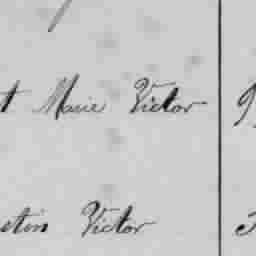 t Marie Victor
stin Victor